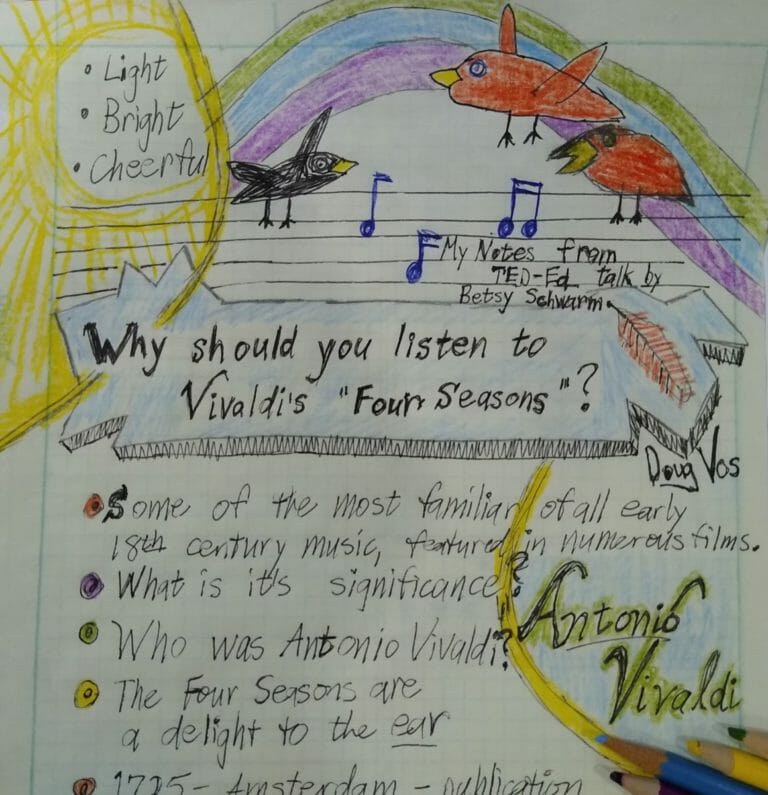 • Light
• Bright
• Cheerful
My Notes from
TED-Ed talk by
Betsy Schwarm.
Why should you listen to
Vivaldi's "Four Seasons"?
Doug Vos
Some of the most familiar of all early
18th century music, featured in numerous films.
What is it's significance?
Who was Antonio Vivaldi?
The Four Seasons are
a delight to the ear
1725 - Amsterdam - publication
Antonio
Vivaldi